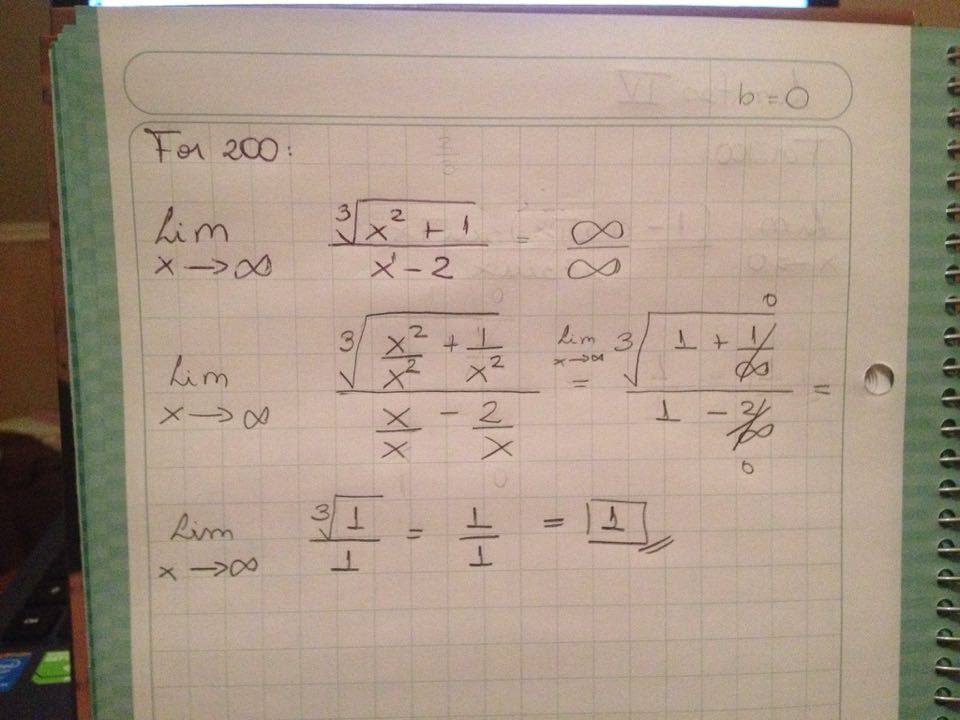 b=0
For 200:
Lim x→∞ ∛(x² + 1) / (x - 2) = ∞/∞
Lim x→∞ ∛(x²/x² + 1/x²) / (x/x - 2/x) = Lim x→∞ ∛(1 + 1/∞ 0) / (1 - 2/∞ 0) =
Lim x→∞ ∛1 / 1 = 1/1 = 1